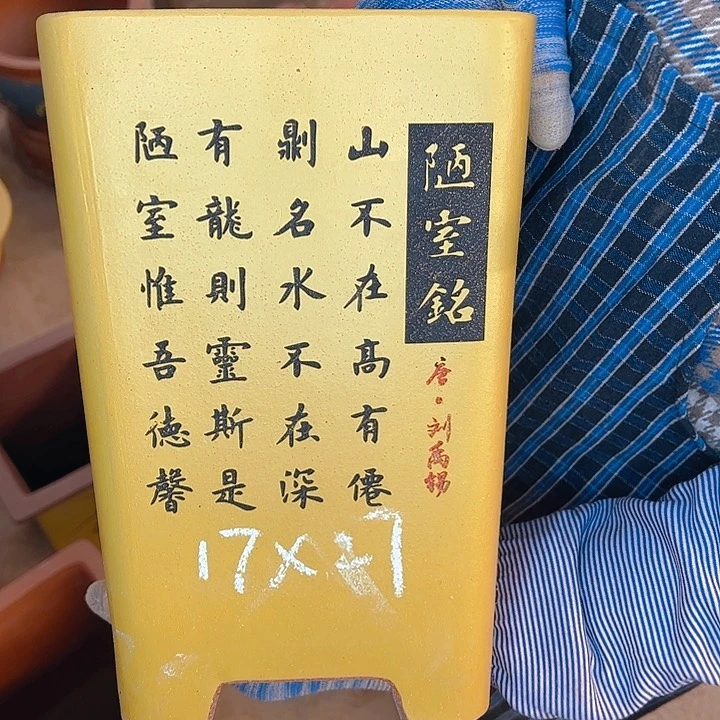 陋室銘
唐·刘禹锡
山不在高有僊
剿名水不在深
有龍則靈斯是
陋室惟吾德馨
17×17